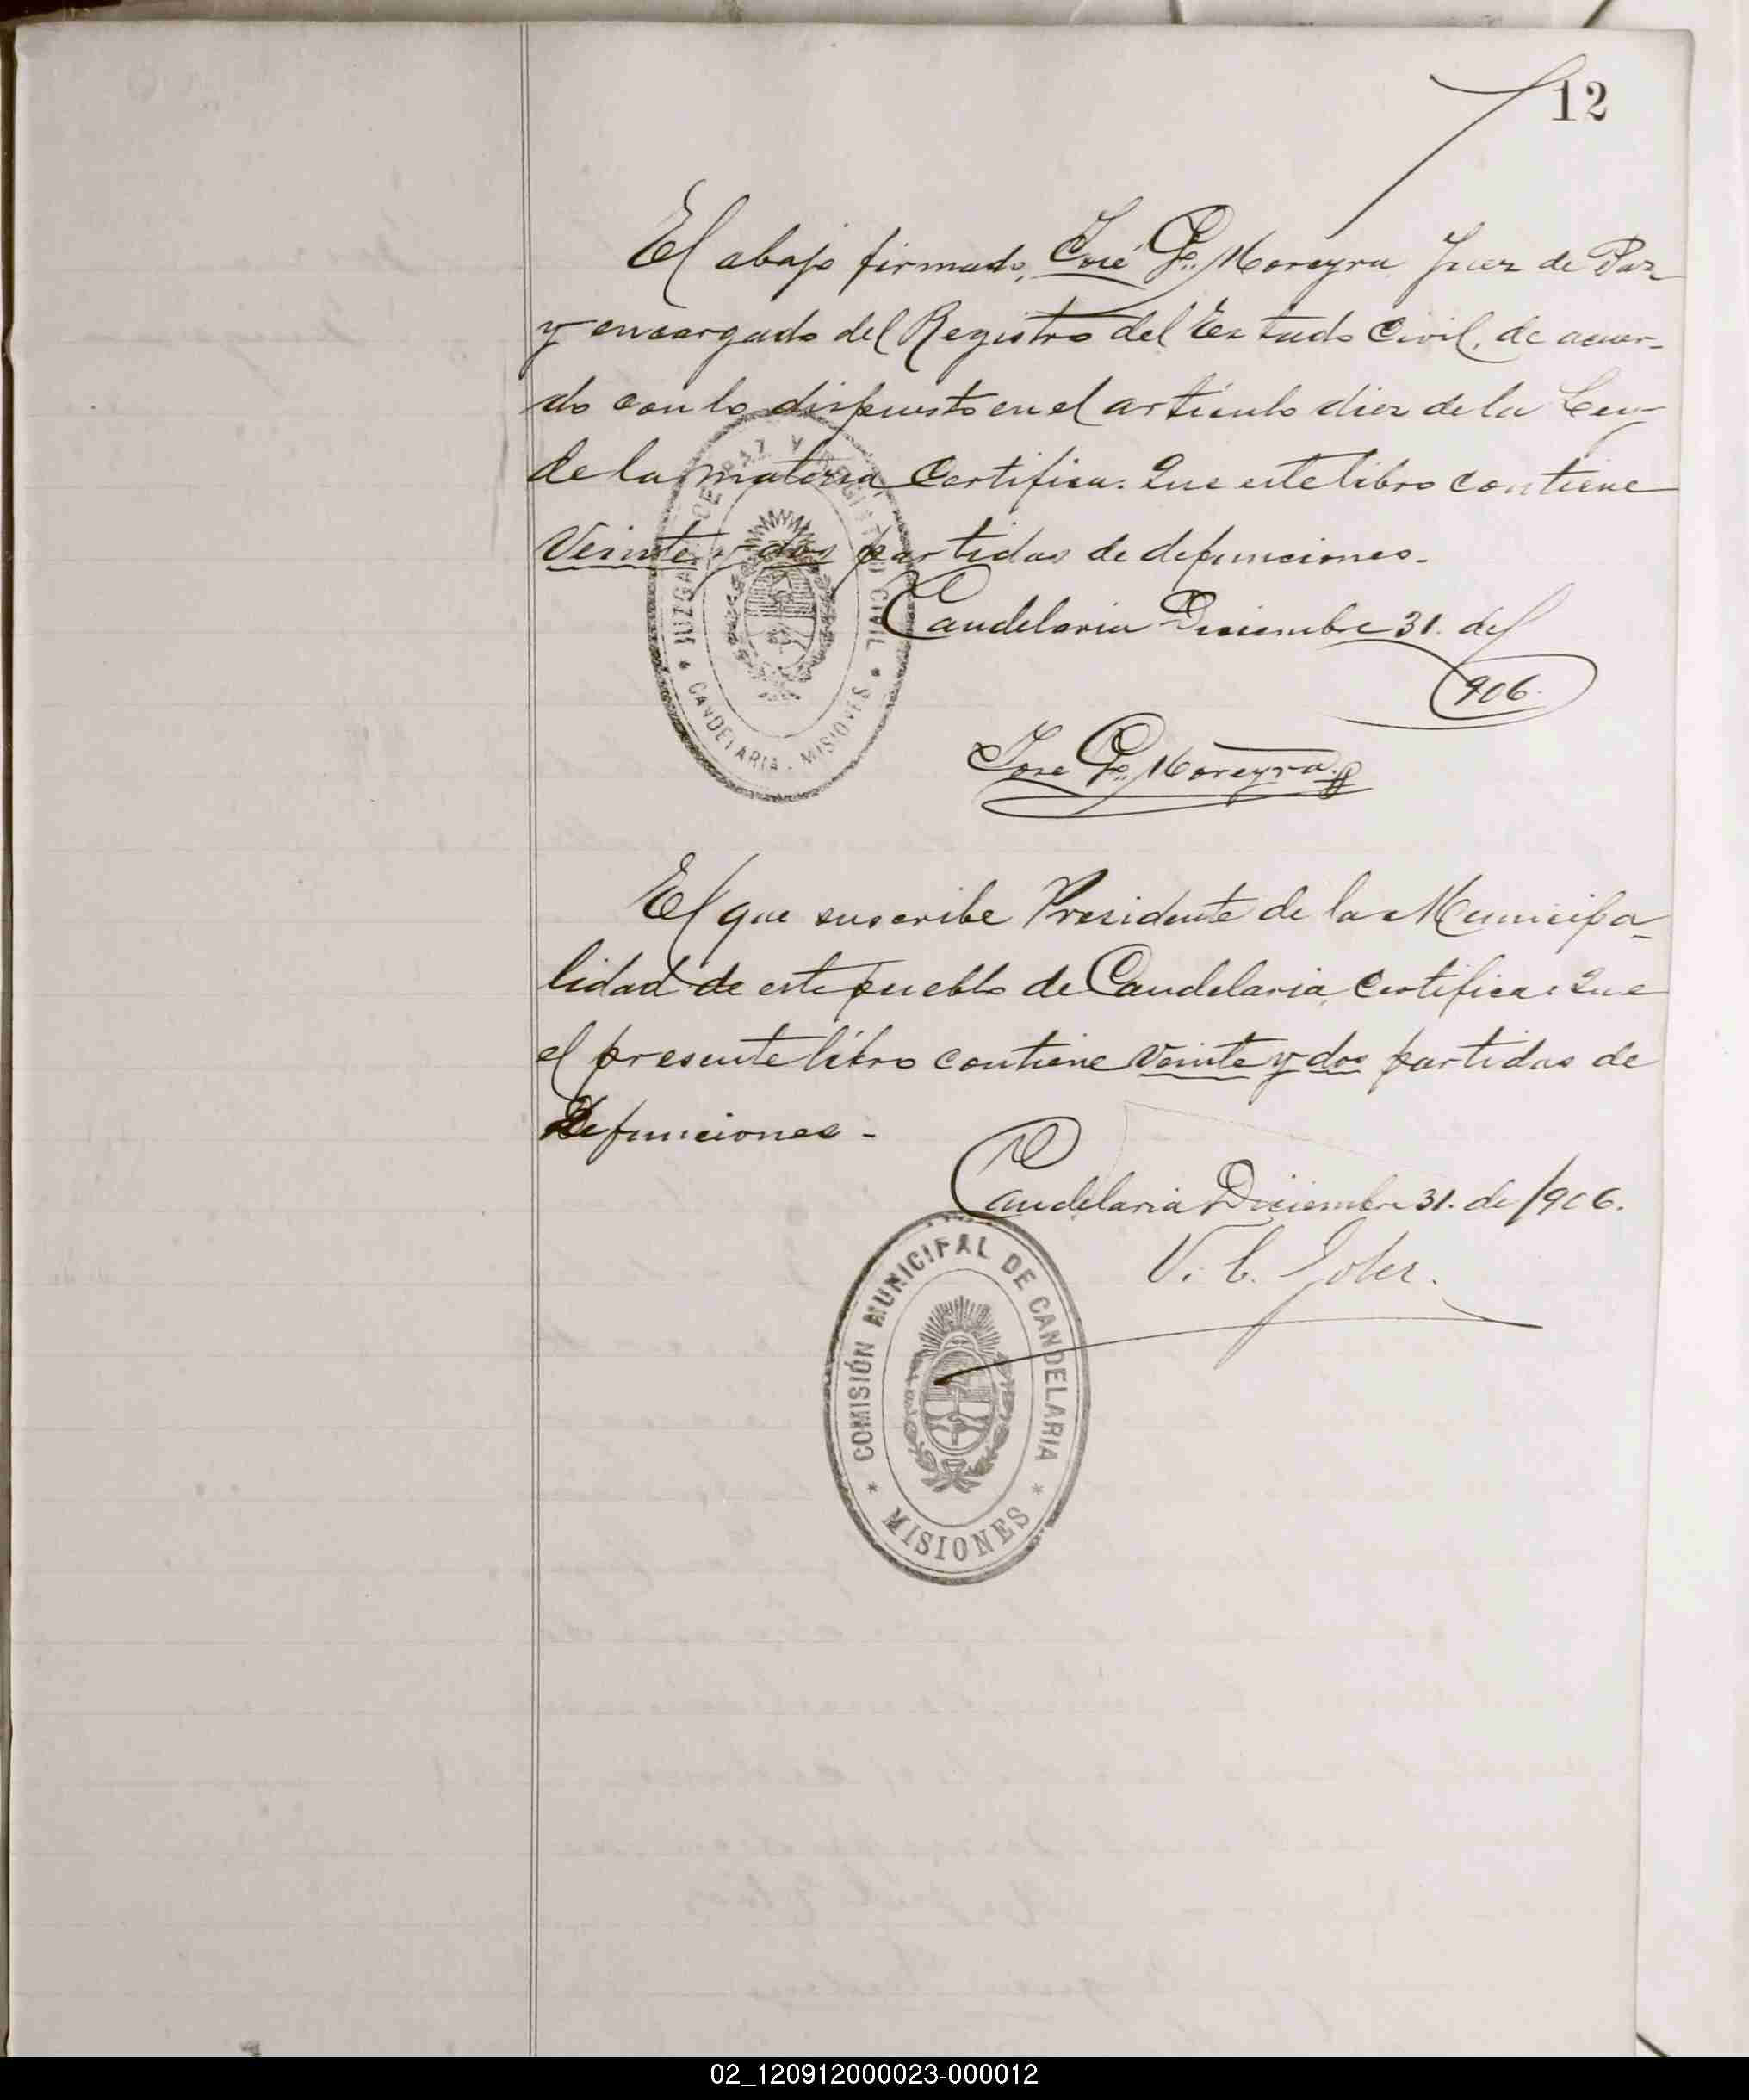 12
El abajo firmado, José G. Moreyra Juez de Paz
y encargado del Registro del Estado Civil, de acuer-
do con lo dispuesto en el artículo diez de la Ley
de la materia, Certifica: Que este libro contiene
Veinte y dos partidas de defunciones.
Candelaria Diciembre 31. de
906.
JUZGADO DE PAZ Y REGISTRO CIVIL
* CANDELARIA - MISIONES *
José G. Moreyra
El que suscribe Presidente de la Municipa-
lidad de este pueblo de Candelaria, Certifica: Que
el presente libro contiene veinte y dos partidas de
Defunciones -
Candelaria Diciembre 31. de 1906.
V. C.
COMISIÓN MUNICIPAL DE CANDELARIA
* MISIONES *
02_120912000023-000012